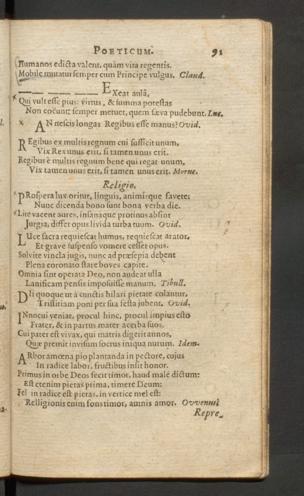 POETICUM. 91
Humanos edicta valent, quàm vita regentis.
Mobile mutatur semper cum Principe vulgus. Claud.
EXeat aulâ,
Qui vult esse pius: virtus, & summa potestas
Non coëunt: semper metuet, quem sæva pudebunt. Luc.
AN nescis longas Regibus esse manus? Ovid.
REgibus ex multis regnum cui sufficit unum,
Vix Rex unus erit, si tamen unus erit.
Regibus è multis regnum bene qui regat unum,
Vix tamen unus erit, si tamen unus erit.
Religio.
PRospera lux oritur, linguis, animisque favete:
Nunc dicenda bono sunt bona verba die.
Lite vacent aures, insanaque protinus absint
Jurgia, differ opus livida turba tuum. Ovid.
LUce sacra requiescat humus, requiescat arator,
Et grave suspenso vomere cesset opus.
Solvite vincla jugis, nunc ad præsepia debent
Plena coronato stare boves capite.
Omnia sint operata Deo, non audeat ulla
Lanificam pensis imposuisse manum. Tibull.
DIi quoque ut à cunctis hilari pietate colantur,
Tristitiam poni per sua festa jubent. Ovid.
INnocui veniat, procul hinc, procul impius esto
Frater, & in partus mater acerba suos.
Cui pater est vivax, qui matris digerit annos,
Quæ premit invisam socrus iniqua nurum. Idem.
ARbor amœna pio plantanda in pectore, cujus
In radice labor, fructibus insit honor.
Primus in orbe Deos fecit timor, haud malè dictum:
Est etenim pietas prima, timere Deum:
Fel in radice est pietas, in vertice mel est:
Relligionis enim fons timor, amnis amor.
Repre_